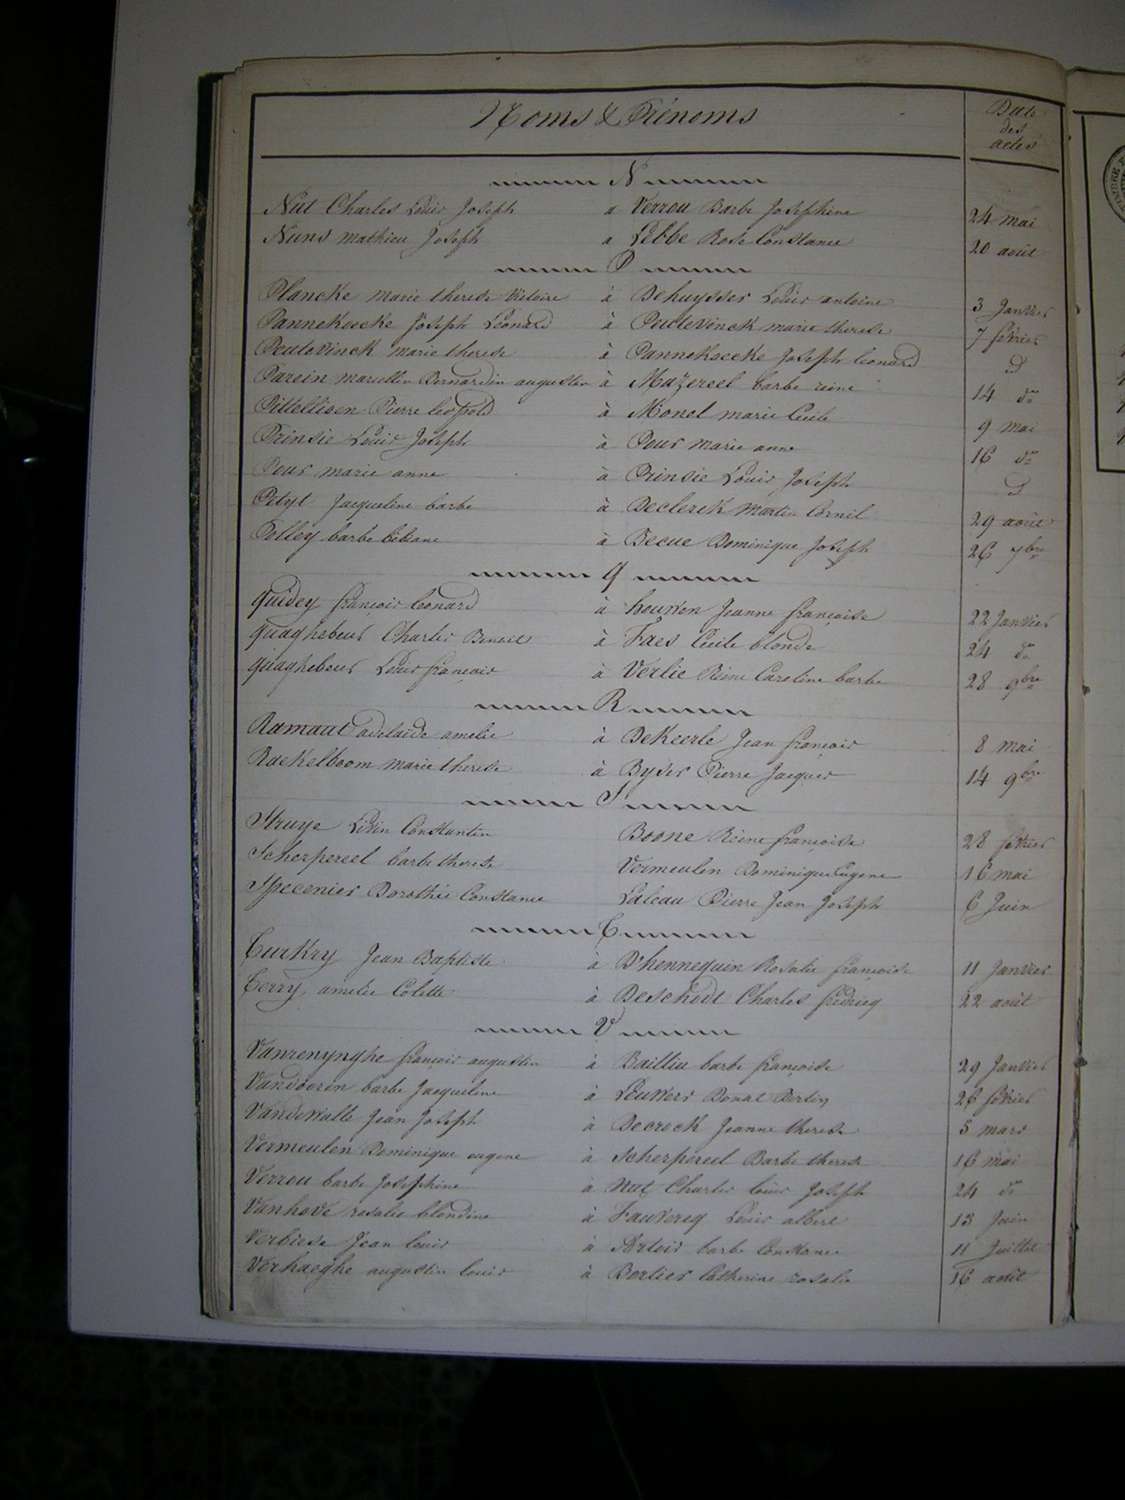 Noms & Prénoms
Date
des
actes
N
Nut Charles Louis Joseph a Verrou Barbe Josephine 24 mai
Nuns mathieu Joseph a Lebbe Rose Constance 20 août
P
Plancke marie therese Victoire à Dehuysser Louis antoine 3 Janvier
Pannekoecke Joseph Léonard à Peutevinck marie therese 7 février
Peutevinck marie therese à Pannekoecke Joseph leonard d
Parein marcellin Bernardin augustin à Mazereel barbe reine 14 do
Pittellioen Pierre leopold à Monel marie Cecile 9 mai
Prinsie Louis Joseph à Peur marie anne 16 do
Peur marie anne à Prinsie Louis Joseph d
Petyt Jacqueline barbe à Declerck Martin Cornil 29 août
Polley barbe bibiane à Decue Dominique Joseph 26 7bre
Q
quidey françois leonard à houvven Jeanne françoise 22 Janvier
quaghebeur Charles Benoit à Faes Cecile blonde 24 do
quaghebeur Louis françois à Verlie Reine Caroline barbe 28 9bre
R
Ramaut adelaïde amelie à DeKeerle Jean françois 8 mai
Rackelboom marie therese à Byser Pierre Jacques 14 9bre
S
Struye Livin Constantin Boone Reine françoise 28 février
Scherpereel barbe therese Vermeulen Dominique Eugene 16 mai
Specenier Dorothée Constance Laleau Pierre Jean Joseph 6 Juin
T
Turkry Jean Baptiste à D'hennequin Rosalie françoise 11 Janvier
Terry amelie Colette à Deschodt Charles frédericq 22 août
V
Vanrenynghe françois augustin à Baillieu barbe françoise 29 Janvier
Vandoorin barbe Jacqueline à Leuwers Donat Bertin 26 février
Vandewalle Jean Joseph à Decrock Jeanne therese 5 mars
Vermeulen Dominique eugene à Scherpereel Barbe therese 16 mai
Verrou barbe Josephine à Nut Charles louis Joseph 24 do
Vanhove rosalie blondine à Fauvercq Louis albert 13 Juin
Verbiese Jean louis à Artois barbe Constance 11 Juillet
Verhaeghe augustin louis à Bertier Catherine rosalie 16 août